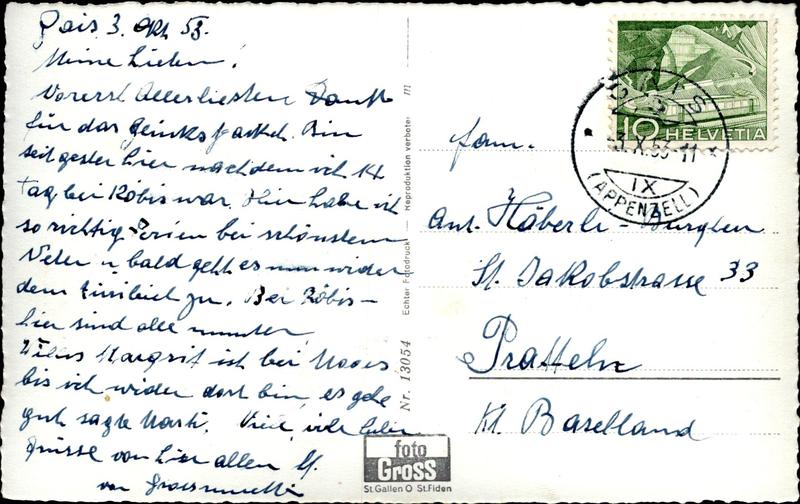 Gais 3. Okt. 53.
Meine Lieben!
Vorerst Allerliesten Dank
für das Geinkspackch. Bin
seit gester hier nachdem ich 14
Tag bei Röbis war. Hier habe ich
so richtig Ferien bei schönstem
Weter u. bald geht es wider
dem zu. Bei Röbis-
hier sind alle munter,
Margrit ist bei
bis ich wider dort bin, es gehe
gut sagte Marti. Viele, viele liebe
Grüsse von hier allen
von Grossmuetti
Echter Fotodruck Reproduktion verboten
Nr. 13054
foto
Gross
St. Gallen O St. Fiden
10 HELVETIA
GAIS
3.X.53-11
IX
(APPENZELL)
Fam.
Ant. Häberli-Burgler
St. Jakobstrasse 33
Pratteln
Kt. Baselland